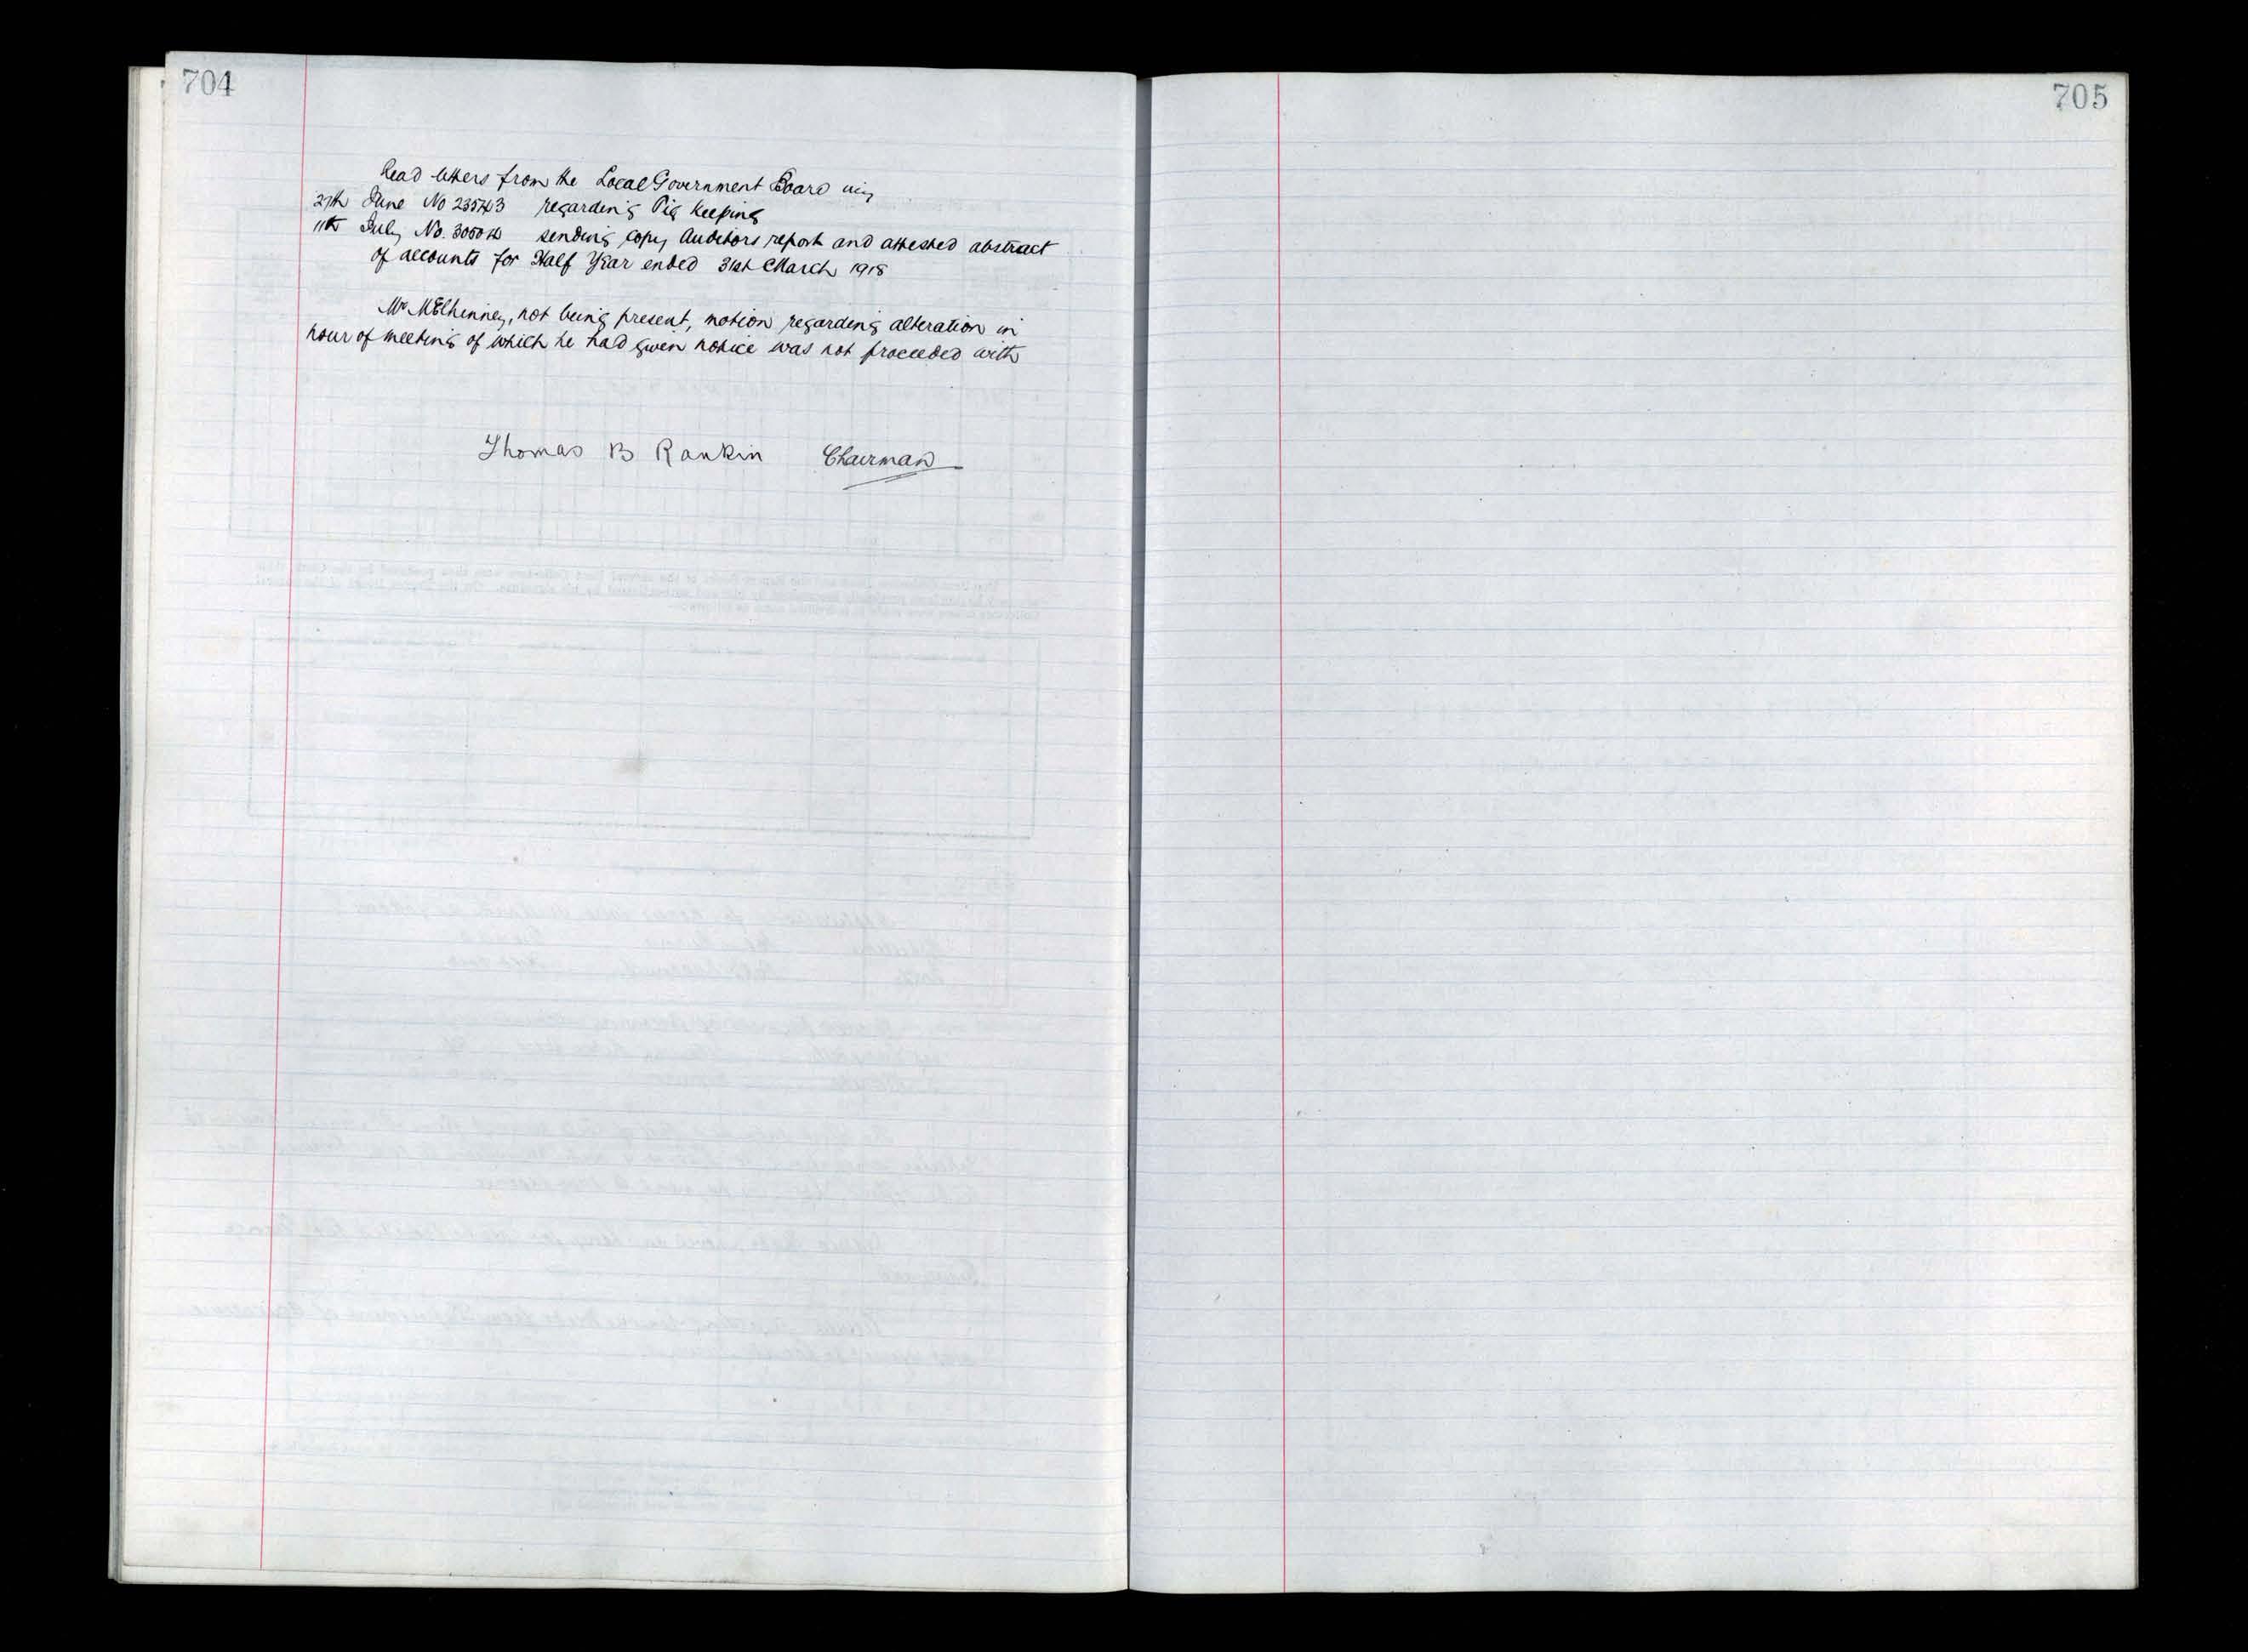 704
Read letters from the Local Government Board viz
27th June No 235743 regarding Pig Keeping
11th July No. sending copy Auditors report and attested abstract
of accounts for Half Year ended 31st March 1918
Mr McElhinney, not being present, motion regarding alteration in
hour of meeting of which he had given notice was not proceeded with
Thomas B Rankin Chairman
705